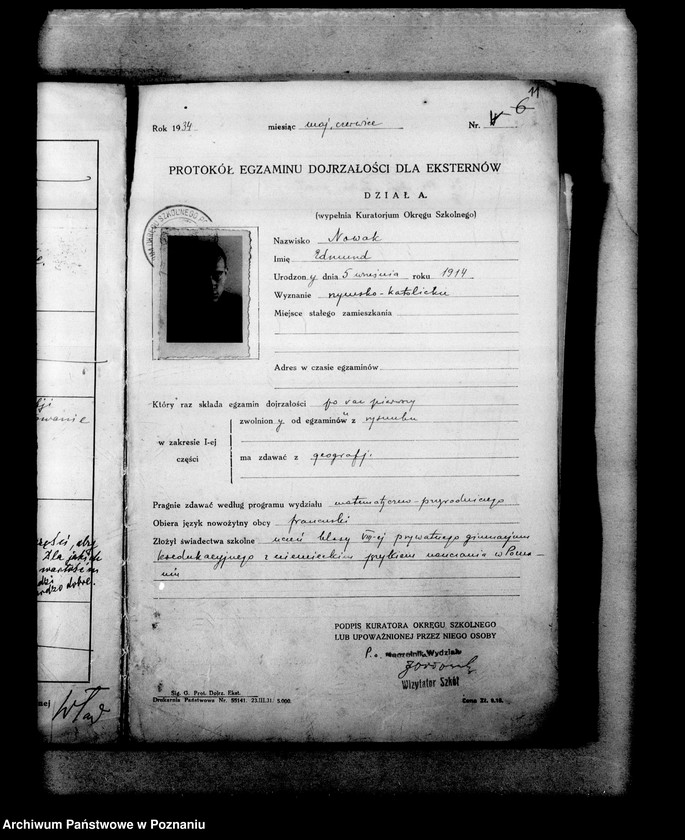 11
6
Rok 1934 miesiąc maj, czerwiec Nr.
PROTOKÓŁ EGZAMINU DOJRZAŁOŚCI DLA EKSTERNÓW
DZIAŁ A.
(wypełnia Kuratorjum Okręgu Szkolnego)
Nazwisko Nowak
Imię Edmund
Urodzony dnia 5 września roku 1914
Wyznanie rzymsko-katolickie
Miejsce stałego zamieszkania
Adres w czasie egzaminów
Który raz składa egzamin dojrzałości po raz pierwszy
w zakresie I-ej części
zwolniony od egzaminów z rysunku
ma zdawać z geografji
Pragnie zdawać według programu wydziału matematyczno-przyrodniczego
Obiera język nowożytny obcy francuski
Złożył świadectwa szkolne uczeń klasy VIII-ej prywatnego gimnazjum
koedukacyjnego z niemieckim językiem nauczania w Pozna-
niu
PODPIS KURATORA OKRĘGU SZKOLNEGO
LUB UPOWAŻNIONEJ PRZEZ NIEGO OSOBY
Naczelnik Wydziału
Wizytator Szkół
Sig. G. Prot. Dojrz. Ekst.
Drukarnia Państwowa Nr. 55141. 23.III.31. 5.000.
Cena Zł. 0.10.
Archiwum Państwowe w Poznaniu